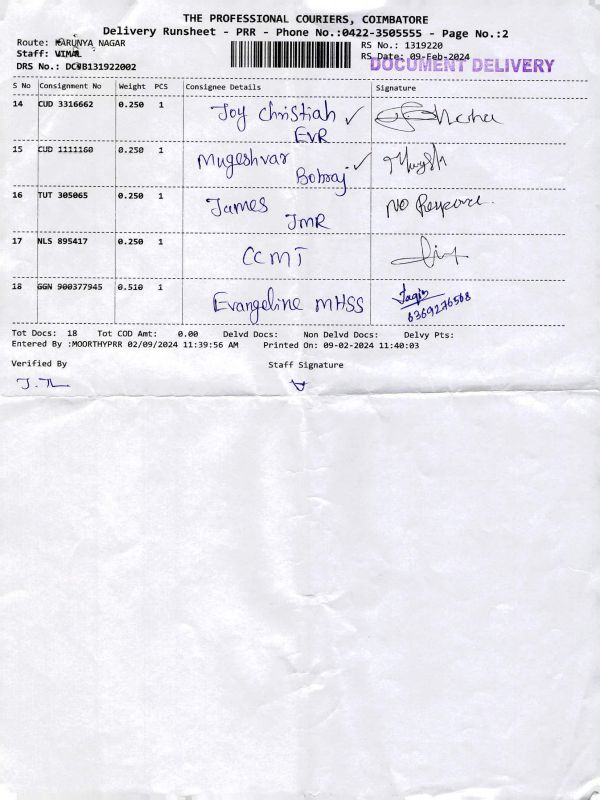 THE PROFESSIONAL COURIERS, COIMBATORE
Delivery Runsheet - PRR - Phone No.:0422-3505555 - Page No.:2
Route: KARUNYA NAGAR
RS No.: 1319220
Staff: VIMAL
RS Date: 09-Feb-2024
DOCUMENT DELIVERY
DRS No.: DCNB131922002
S No Consignment No Weight PCS Consignee Details Signature
14 CUD 3316662 0.250 1 Joy Christiah ✓
EVR
15 CUD 1111160 0.250 1 Mugeshvar ✓
Bobraj
16 TUT 305065 0.250 1 James No Response.
JMR
17 NLS 895417 0.250 1 CCMT
18 GGN 900377945 0.510 1 Evangeline MHSS
8369276568
Tot Docs: 18 Tot COD Amt: 0.00 Delvd Docs: Non Delvd Docs: Delvy Pts:
Entered By :MOORTHYPRR 02/09/2024 11:39:56 AM Printed On: 09-02-2024 11:40:03
Verified By Staff Signature